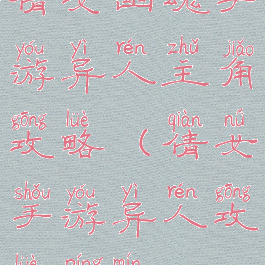 yóu yì rén zhǔ jiǎo
游异人主角
gōng lüè qiàn nǚ
攻略（倩女
shǒu yóu yì rén gōng
手游异人攻
lüè píng mín